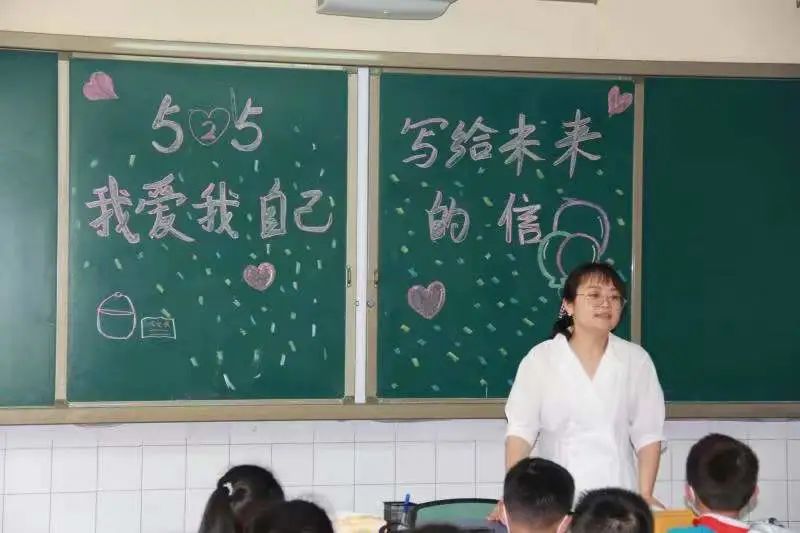 525
我爱我自己
写给未来
的信